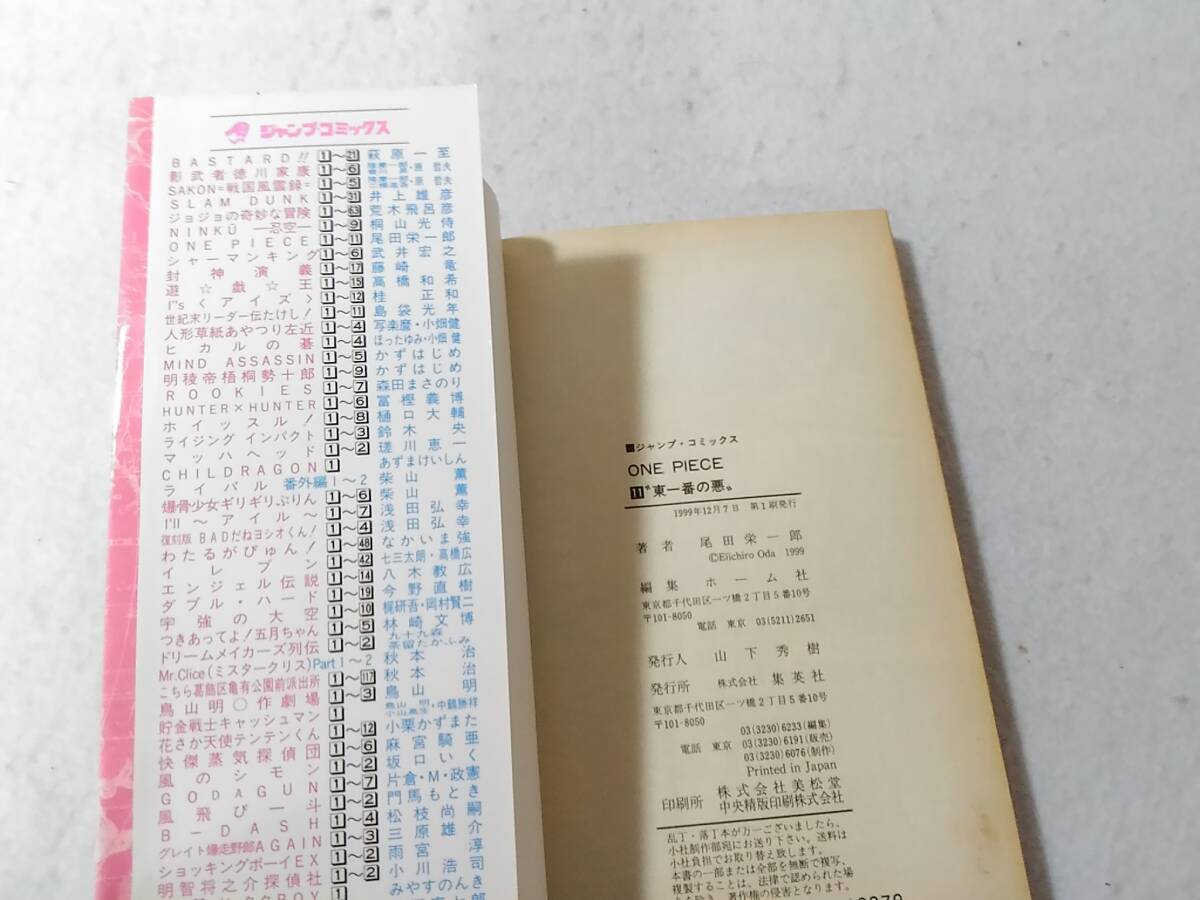 ジャンプ・コミックス
BASTARD!! 1〜21 萩原一至
影武者徳川家康 1〜6 隆慶一郎・原 哲夫
SAKON=戦国風雲録= 1〜5 隆慶一郎・原 哲夫
SLAM DUNK 1〜31 井上雄彦
ジョジョの奇妙な冒険 1〜63 荒木飛呂彦
NINKŪ —忍空— 1〜9 桐山光侍
ONE PIECE 1〜11 尾田栄一郎
シャーマンキング 1〜6 武井宏之
封神演義 1〜17 藤崎 竜
遊☆戯☆王 1〜15 高橋和希
I"s〈アイズ〉 1〜12 桂 正和
世紀末リーダー伝たけし! 1〜11 島袋光年
人形草紙あやつり左近 1〜4 写楽麿・小畑健
ヒカルの碁 1〜4 ほったゆみ・小畑 健
MIND ASSASSIN 1〜5 かずはじめ
明稜帝梧桐勢十郎 1〜9 かずはじめ
ROOKIES 1〜7 森田まさのり
HUNTER×HUNTER 1〜6 冨樫義博
ホイッスル! 1〜8 樋口大輔
ライジング インパクト 1〜3 鈴木 央
マッハヘッド 1〜2 瑳川恵一
CHILDRAGON 1 あずまけいしん
ライバル 番外編 1〜2 柴山 薫
爆骨少女ギリギリぷりん 1〜6 柴山 薫
I'll 〜アイル〜 1〜7 浅田弘幸
復刻版 BADだねヨシオくん! 1〜4 浅田弘幸
わたるがぴゅん! 1〜48 なかいま強
イレブン 1〜42 七三太朗・高橋広
エンジェル伝説 1〜14 八木教広
ダブル・ハード 1〜19 今野直樹
宇強の大空 1〜10 梶研吾・岡村賢二
つきあってよ!五月ちゃん 1〜5 林崎文博
ドリームメイカーズ列伝 1〜2 九十九森 茶留たかふみ
Mr.Clice(ミスタークリス) Part 1〜2 秋本 治
こちら葛飾区亀有公園前派出所 1〜117 秋本 治
鳥山明○作劇場 1〜3 鳥山 明
貯金戦士キャッシュマン 1 鳥山 明・中鶴勝祥
花さか天使テンテンくん 1〜12 小栗かずまた
快傑蒸気探偵団 1〜6 麻宮騎亜
風のシモン 1〜2 坂口いく
GODAGUN 1〜7 片倉・M・政憲
風飛び一斗 1〜2 門馬もとき
B-DASH 1〜4 松枝尚嗣
グレイト爆走野郎AGAIN 1〜3 三原雄介
ショッキングボーイEX 1〜2 雨宮 淳
明智将之介探偵社 1〜2 小川浩司
1 みやすのんき
■ジャンプ・コミックス
ONE PIECE
11 〝東一番の悪〟
1999年12月7日 第1刷発行
著者 尾田栄一郎
©Eiichiro Oda 1999
編集 ホーム社
東京都千代田区一ツ橋2丁目5番10号
〒101-8050
電話 東京 03(5211)2651
発行人 山下秀樹
発行所 株式会社 集英社
東京都千代田区一ツ橋2丁目5番10号
〒101-8050
03(3230)6233(編集)
電話 東京 03(3230)6191(販売)
03(3230)6076(制作)
Printed in Japan
印刷所 株式会社美松堂
中央精版印刷株式会社
乱丁・落丁本が万一ございましたら、
小社制作部宛にお送り下さい。送料は
小社負担でお取り替え致します。
本書の一部または全部を無断で複写、
複製することは、法律で認められた場
合を除き、著作権の侵害となります。